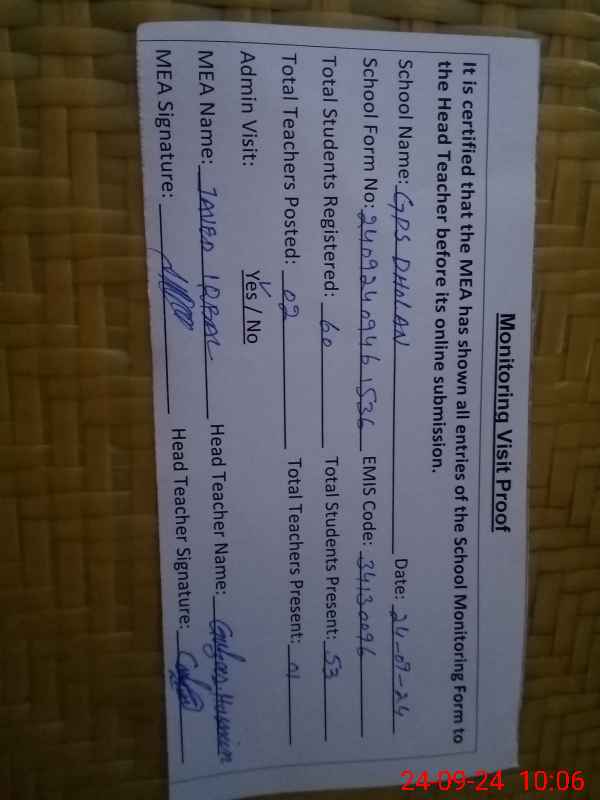 Monitoring Visit Proof
It is certified that the MEA has shown all entries of the School Monitoring Form to
the Head Teacher before its online submission.
School Name: GPS DHOLAN Date: 24-09-24
School Form No: 2409240946 1536 EMIS Code: 34130096
Total Students Registered: 60 Total Students Present: 53
Total Teachers Posted: 02 Total Teachers Present: 01
Admin Visit: Yes / No
MEA Name: IQBAL Head Teacher Name: Hussain
MEA Signature: Head Teacher Signature:
24-09-24 10:06